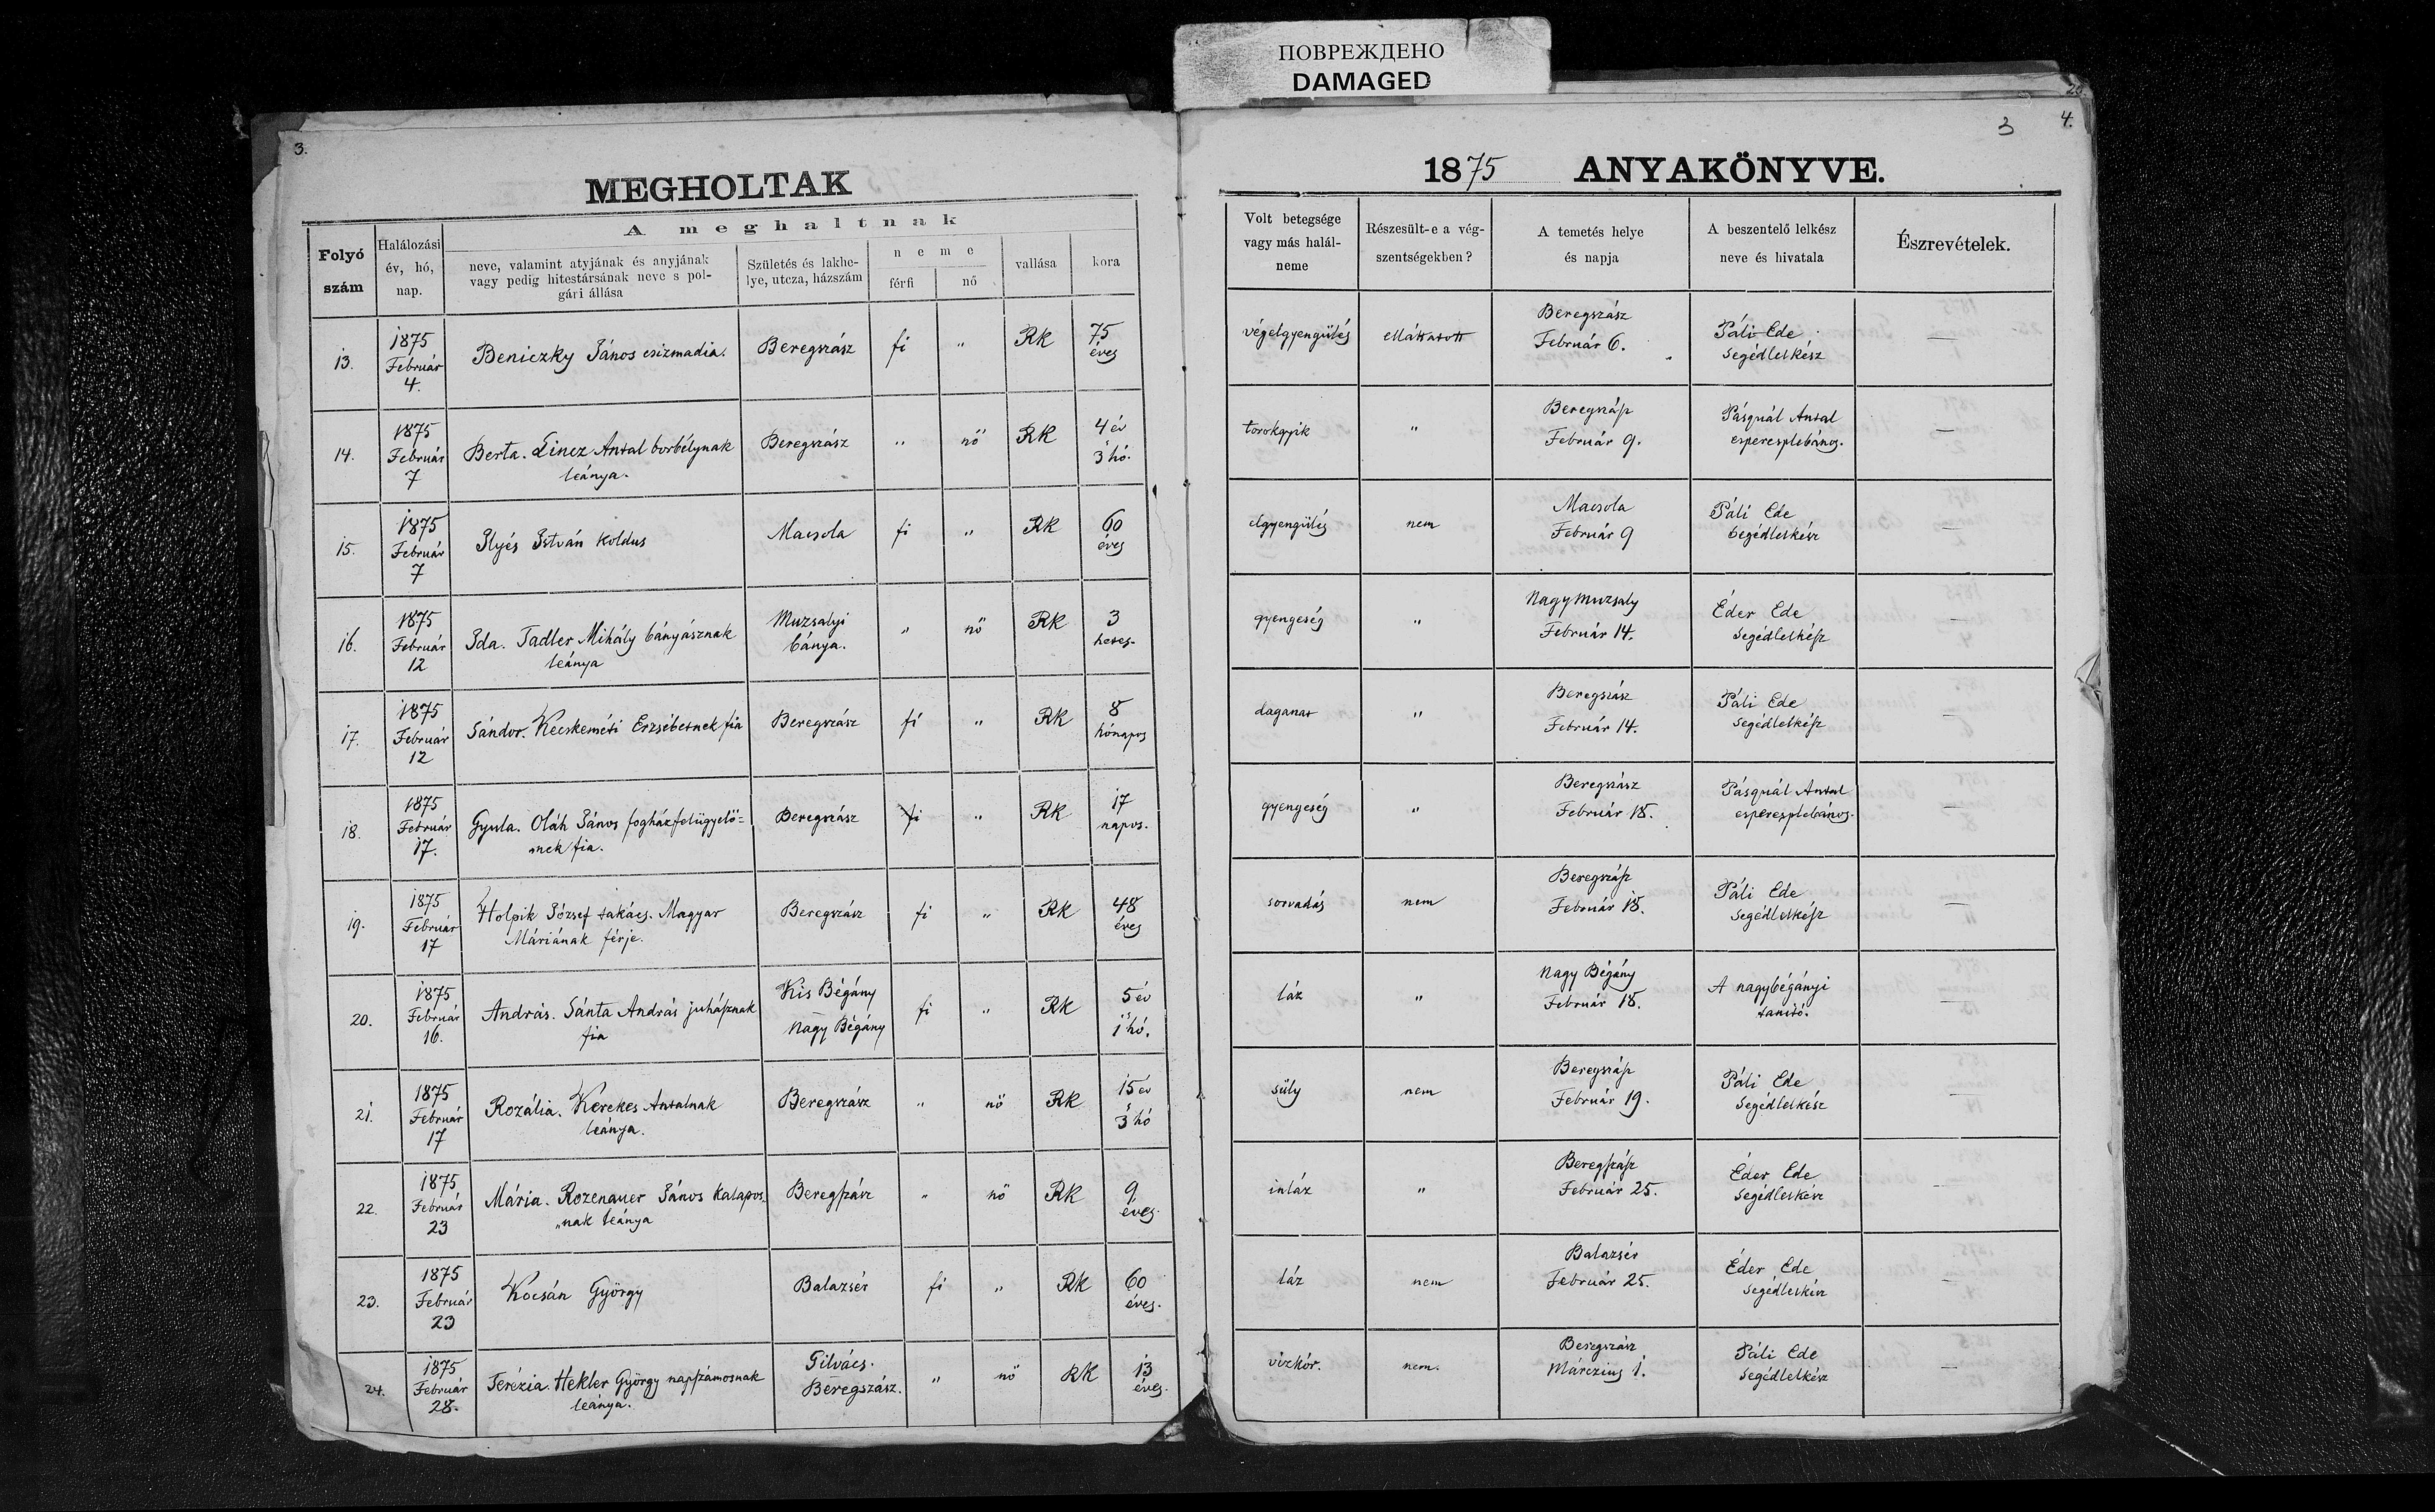 ПОВРЕЖДЕНО
DAMAGED
3.
MEGHOLTAK
Folyó szám
Halálozási év, hó, nap.
A meghaltnak
neve, valamint atyjának és anyjának vagy pedig hitestársának neve s polgári állása
Születés és lakhelye, utcza, házszám
neme
férfi
nő
vallása
kora
13. 1875 Február 4. Beniczky János csizmadia. Beregszász fi " RK 75 éves
14. 1875 Február 7 Berta. Lincz Antal borbélynak leánya. Beregszász " nő RK 4 év s 3 hó.
15. 1875 Február 7 Ilyés István koldus Macsola fi " RK 60 éves
16. 1875 Február 12 Ida. Tadler Mihály bányásznak leánya Muzsalyi bánya. " nő RK 3 hetes.
17. 1875 Február 12 Sándor. Kecskeméti Erzsébetnek fia Beregszász fi " RK 8 hónapos
18. 1875 Február 17. Gyula. Oláh János fogházfelügyelő=nek fia. Beregszász fi " RK 17 napos.
19. 1875 Február 17 Holpik József takács. Magyar Máriának férje. Beregszász fi " RK 48 éves
20. 1875 Február 16. András. Sánta András juhásznak fia Kis Bégány Nagy Bégány fi " RK 5 év s 1 hó.
21. 1875 Február 17 Rozália. Kerekes Antalnak leánya. Beregszász " nő RK 15 év s 3 hó
22. 1875 Február 23 Mária. Rozenauer János kalapos=nak leánya Beregszász " nő RK 9 éves.
23. 1875 Február 23 Kocsán György Balazsér fi " RK 60 éves.
24. 1875 Február 28. Terézia. Hekler György napszámosnak leánya. Gilvács. Beregszász. " nő RK 13 éves.
3
4.
1875 ANYAKÖNYVE.
Volt betegsége vagy más halálneme
Részesült-e a végszentségekben?
A temetés helye és napja
A beszentelő lelkész neve és hivatala
Észrevételek.
végelgyengülés elláttatott Beregszász Február 6. Páli Ede segédlelkész —
torokgyik " Beregszász Február 9. Pásquál Antal esperesplebános. —
elgyengülés nem Macsola Február 9 Páli Ede segédlelkész —
gyengeség " Nagymuzsaly Február 14. Éder Ede segédlelkész —
daganat " Beregszász Február 14. Páli Ede segédlelkész —
gyengeség " Beregszász Február 18. Pásquál Antal esperesplebános. —
sorvadás nem Beregszász Február 18. Páli Ede segédlelkész —
láz " Nagy Bégány Február 18. A nagybégányi tanító. —
süly nem Beregszász Február 19. Páli Ede segédlelkész —
inláz " Beregszász Február 25. Éder Ede segédlelkész —
láz nem Balazsér Február 25. Éder Ede segédlelkész —
vizkór. nem. Beregszász Márczius 1. Páli Ede segédlelkész —